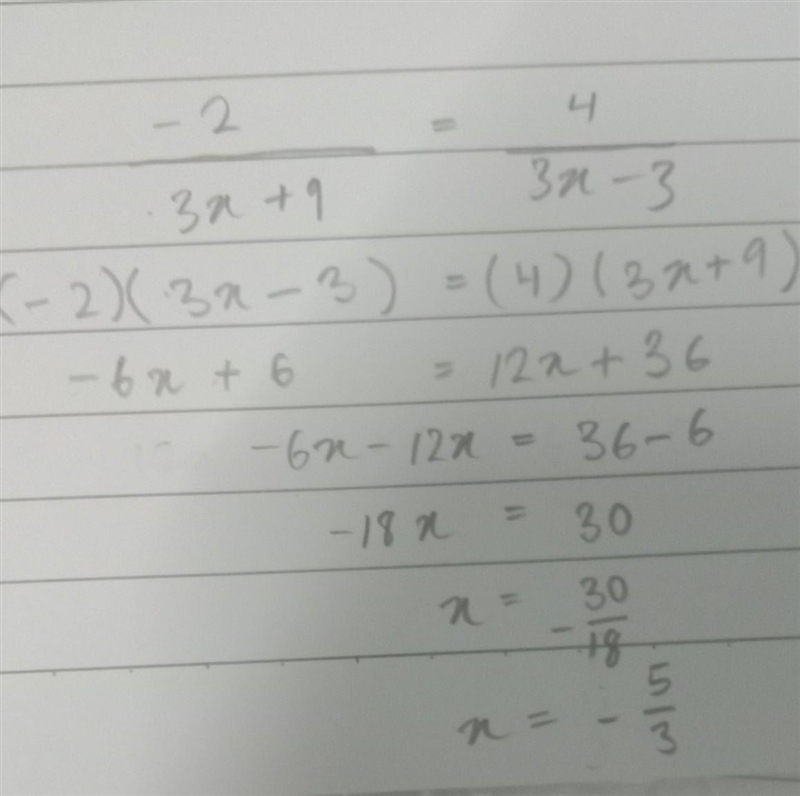 -2/(3x+9) = 4/(3x-3)
(-2)(3x-3) = (4)(3x+9)
-6x+6 = 12x+36
-6x-12x = 36-6
-18x = 30
x = -30/18
x = -5/3